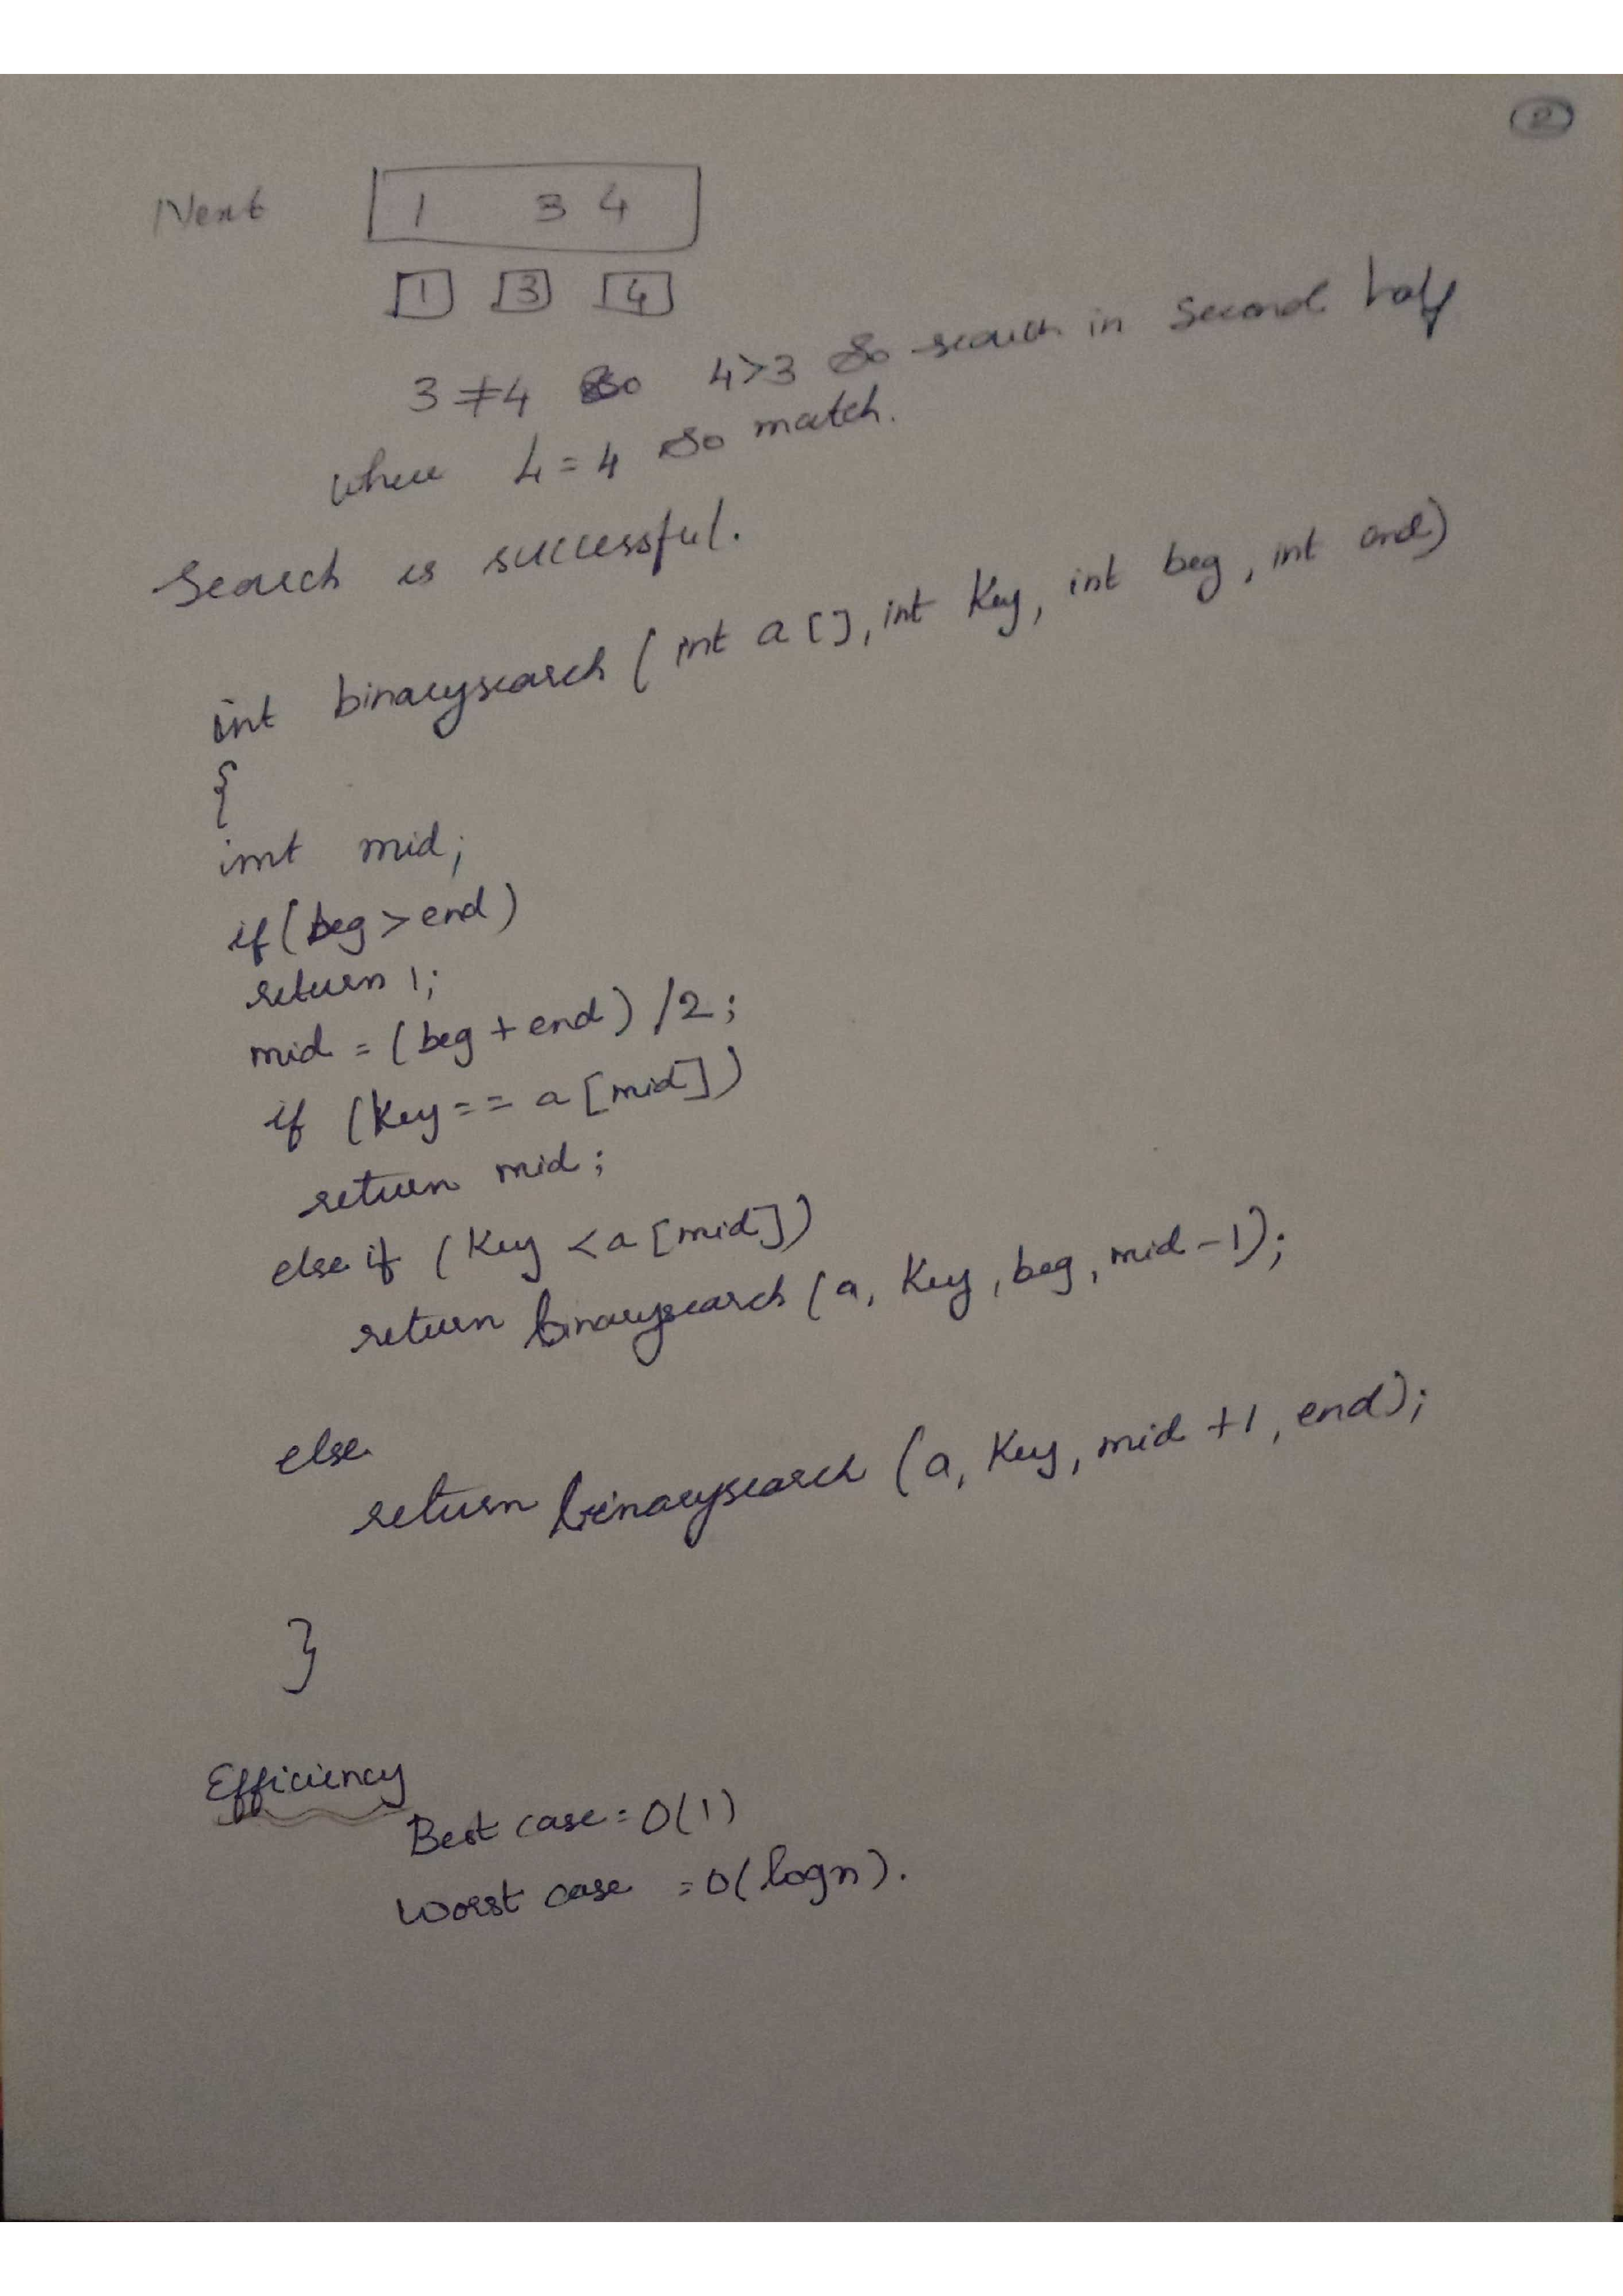 2
Next 1 3 4
1 3 4
3 ≠ 4 So 4>3 So search in Second half
where 4 = 4 So match.
Search is successful.
int binarysearch (int a[], int Key, int beg, int end)
{
int mid;
if (beg > end)
return 1;
mid = (beg + end) /2;
if (Key == a [mid])
return mid;
else if (Key < a [mid])
return binarysearch (a, Key, beg, mid-1);
else
return binarysearch (a, Key, mid +1, end);
}
Efficiency
Best case = O(1)
Worst case = O(logn).